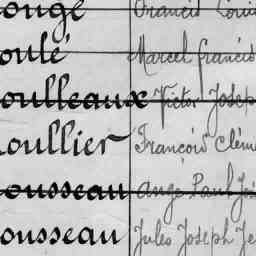 ougé Francis Louis
oulé Marcel francis
oulleaux Victor Josep
oullier François Clém
ousseau Ange Paul Jos
ousseau Jules Joseph Je